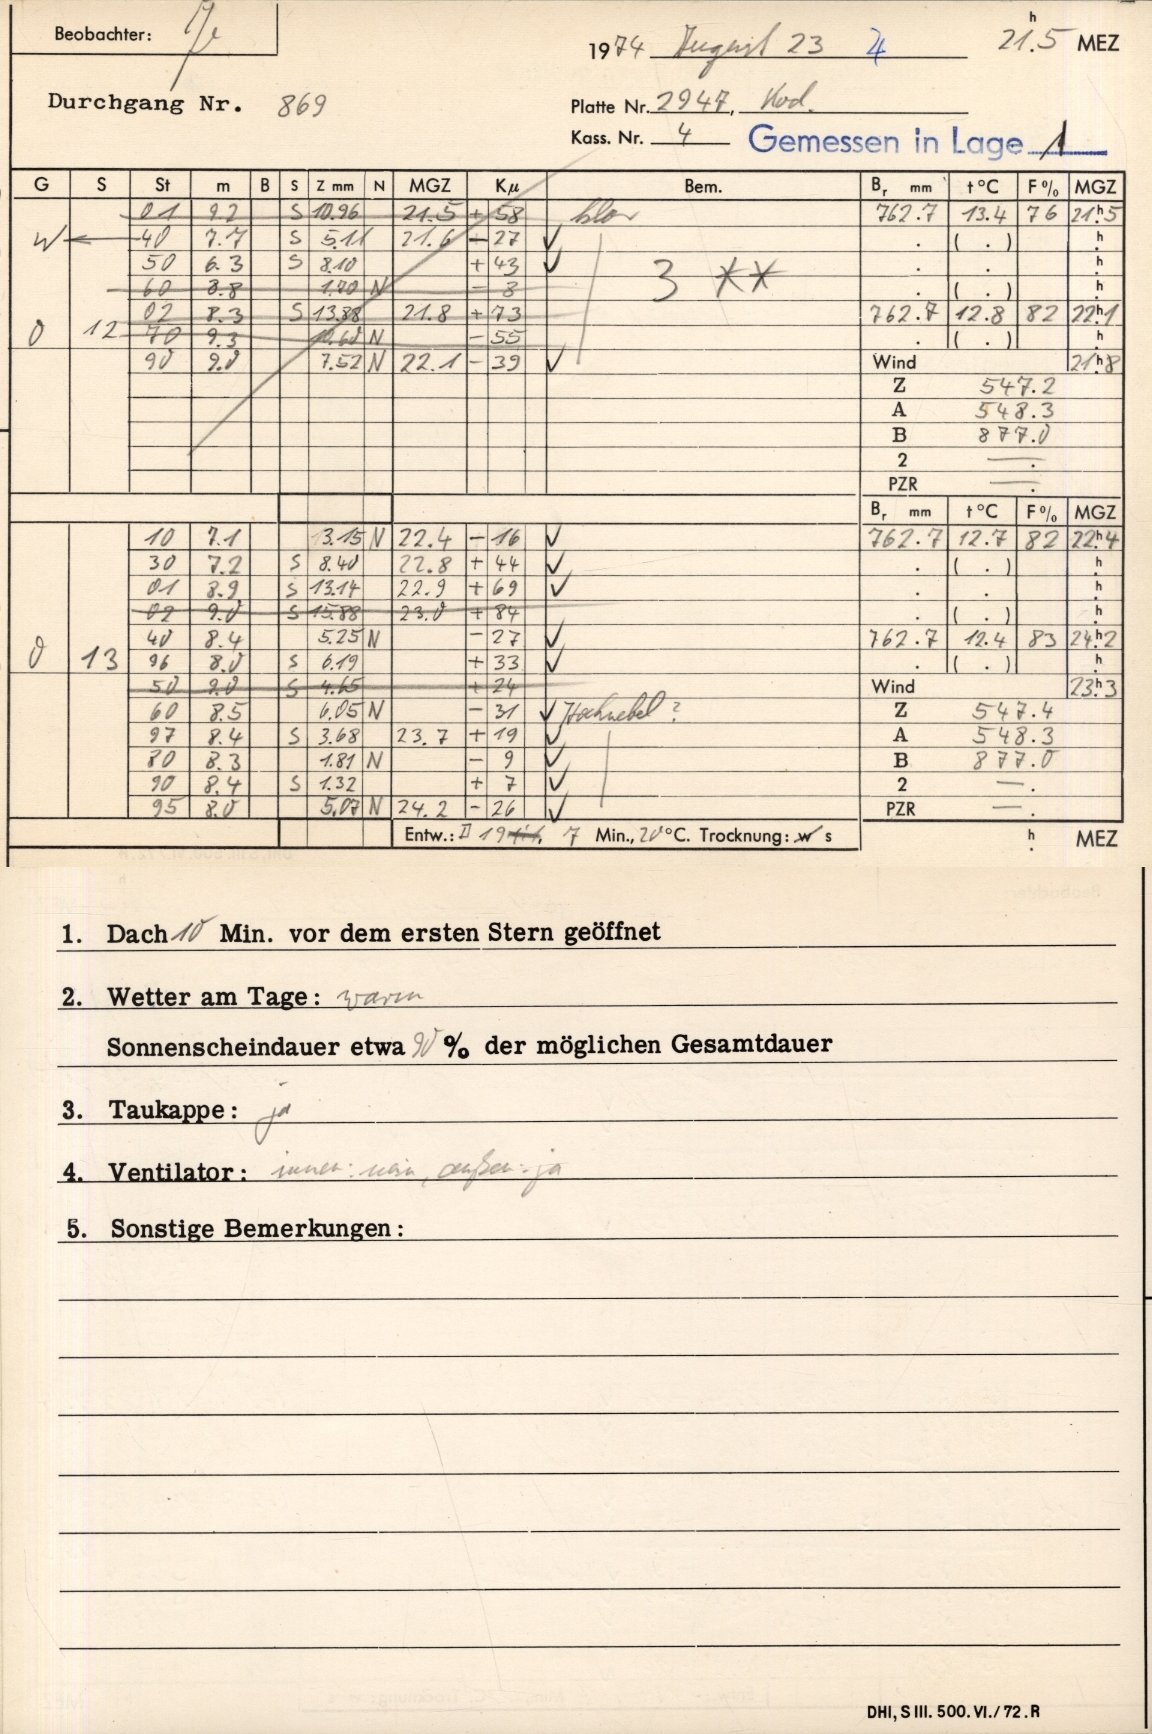 Beobachter:
1974 August 23 4 21h.5 MEZ
Durchgang Nr. 869
Platte Nr. 2947, Kod.
Kass. Nr. 4 Gemessen in Lage 1
G S St m B S Z mm N MGZ Kμ Bem. Br mm t°C F% MGZ
01 9.2 S 10.96 21.5 + 58 klar 762.7 13.4 76 21h.5
W 40 7.7 S 5.11 21.6 - 27 ✓ . ( . ) h
50 6.3 S 8.10 + 43 ✓ 3 ** . . h
60 8.8 1.70 N - 8 . ( . ) h
02 8.3 S 13.88 21.8 + 73 762.7 12.8 82 22h.1
0 12 70 9.3 10.60 N - 55 . ( . ) h
90 9.0 7.52 N 22.1 - 39 ✓ Wind 21h.8
Z 547.2
A 548.3
B 877.0
2 — .
PZR — .
Br mm t°C F% MGZ
10 7.1 13.15 N 22.4 - 16 ✓ 762.7 12.7 82 22h.4
30 7.2 S 8.40 22.8 + 44 ✓ . ( . ) h
01 8.9 S 13.14 22.9 + 69 ✓ . . h
02 9.0 S 15.88 23.0 + 84 . ( . ) h
40 8.4 5.25 N - 27 ✓ 762.7 12.4 83 24h.2
0 13 96 8.0 S 6.19 + 33 ✓ . ( . ) h
50 9.0 S 4.65 + 24 Wind 23h.3
60 8.5 6.05 N - 31 ✓ Hochnebel? Z 547.4
97 8.4 S 3.68 23.7 + 19 ✓ A 548.3
80 8.3 1.81 N - 9 ✓ B 877.0
90 8.4 S 1.32 + 7 ✓ 2 — .
95 8.0 5.07 N 24.2 - 26 ✓ PZR — .
Entw.: D 19 7 Min., 20°C. Trocknung: w s h MEZ
1. Dach 10 Min. vor dem ersten Stern geöffnet
2. Wetter am Tage: warm
Sonnenscheindauer etwa 90 % der möglichen Gesamtdauer
3. Taukappe: ja
4. Ventilator: innen: nein, außen: ja
5. Sonstige Bemerkungen:
DHI, S III. 500. VI./72. R